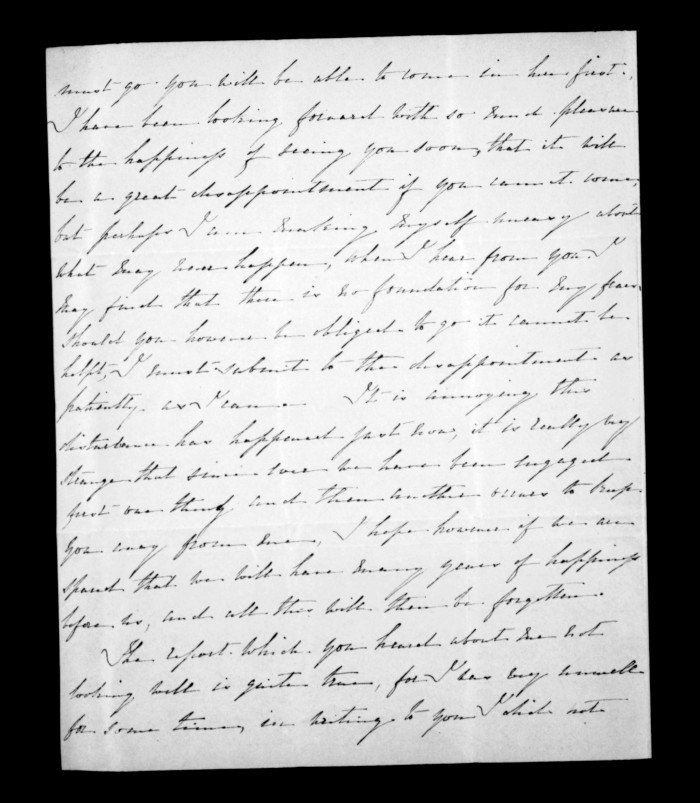 must go you will be able to come in here first.
I have been looking forward with so much pleasure
to the happiness of seeing you soon, that it will
be a great disappointment if you cannot come,
but perhaps I am making myself uneasy about
what may never happen, when I hear from you I
may find that there is no foundation for my fears.
Should you however be obliged to go it cannot be
helpt, I must submit to the disappointment as
patiently as I can. It is annoying this
disturbance has happened just now, it is really very
strange that since ever we have been engaged
first one thing and then another occurs to keep
you away from me, I hope however if we are
spared that we will have many years of happiness
before us, and all this will then be forgotten.
The report which you heard about me not
looking well is quite true, for I was very unwell
for some time, in writing to you I did not